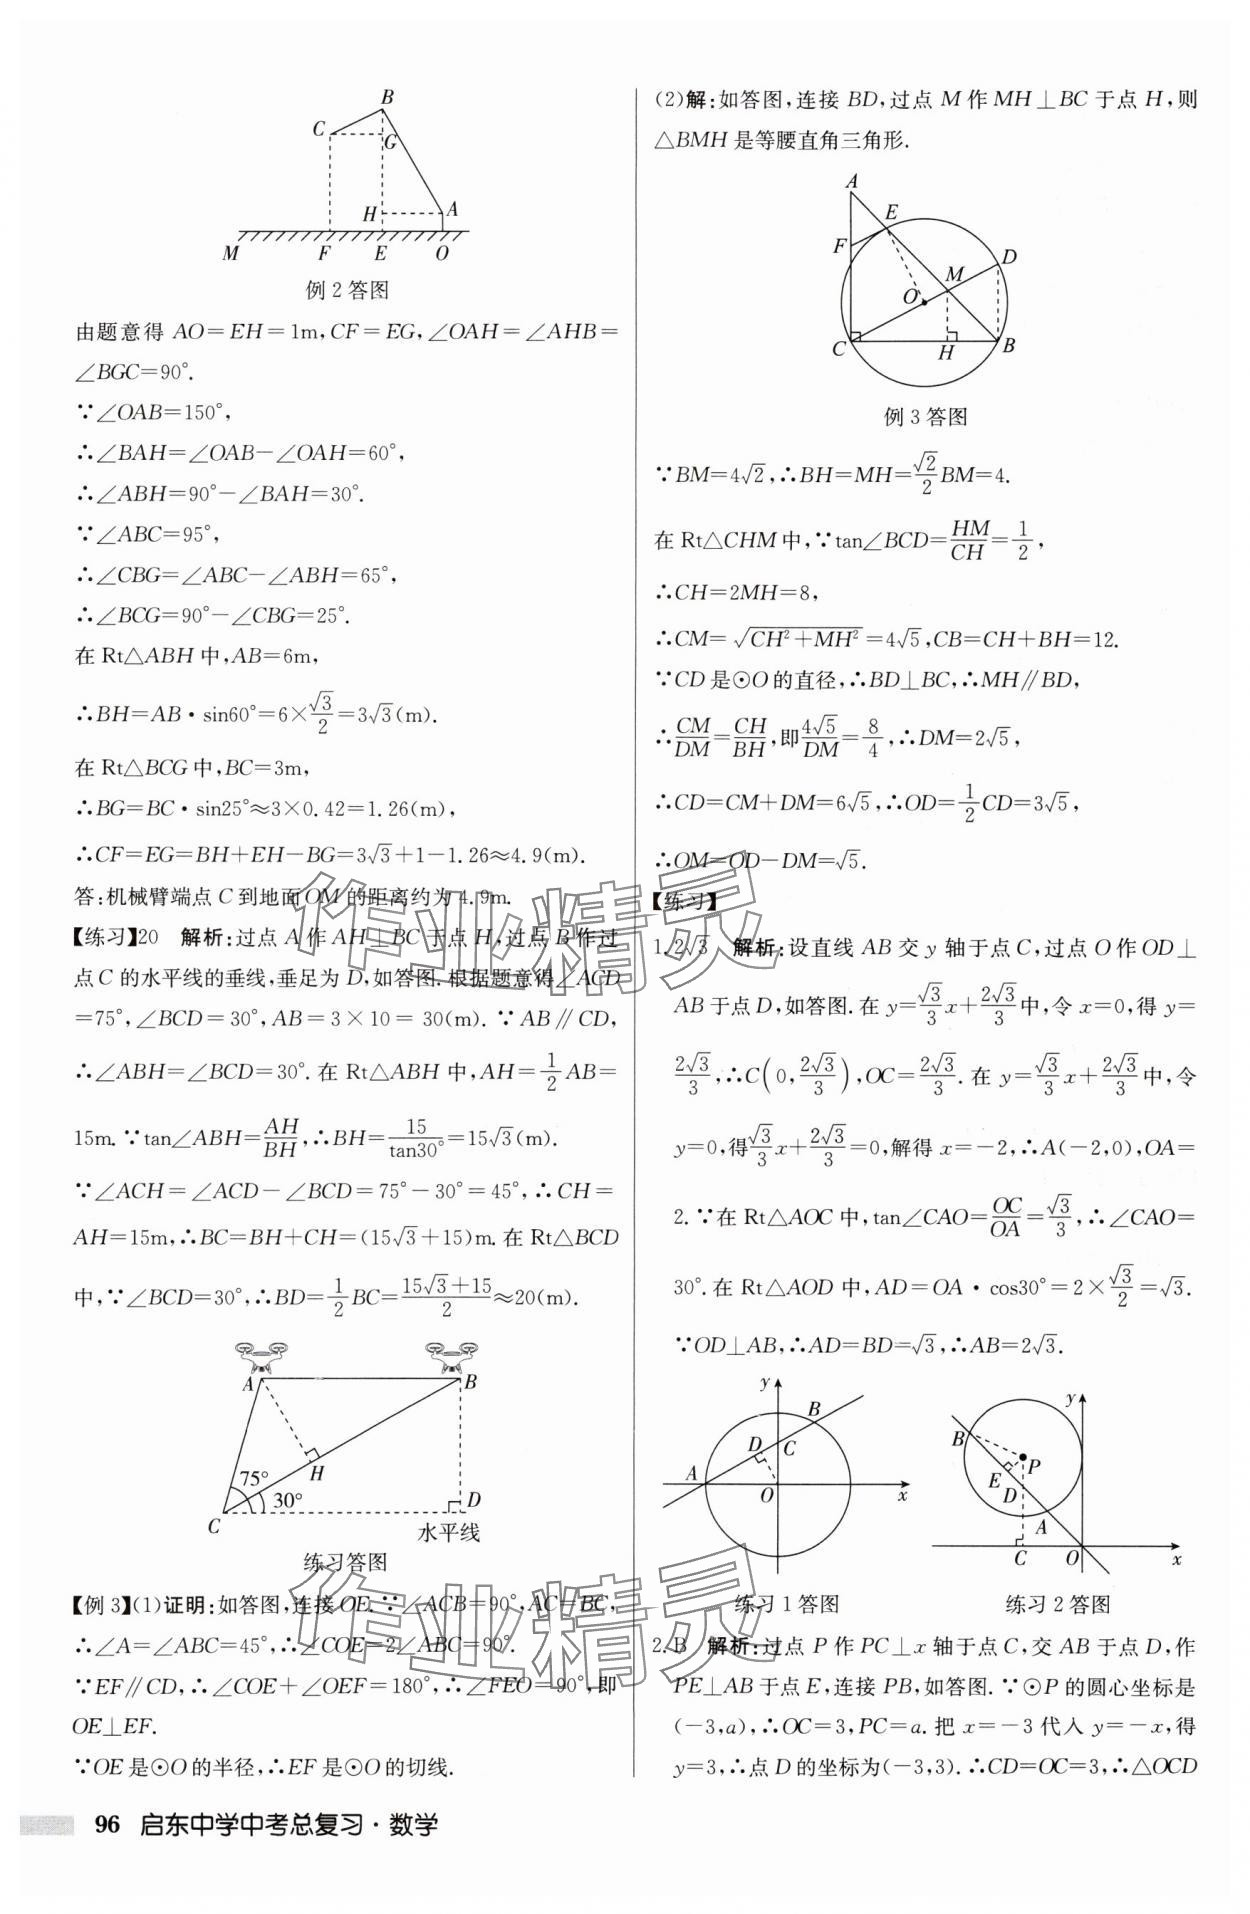 B
C
G
H
A
M
F
E
O
例2答图
由题意得 AO=EH=1m,CF=EG,∠OAH=∠AHB=
∠BGC=90°.
∵∠OAB=150°,
∴∠BAH=∠OAB-∠OAH=60°,
∴∠ABH=90°-∠BAH=30°.
∵∠ABC=95°,
∴∠CBG=∠ABC-∠ABH=65°,
∴∠BCG=90°-∠CBG=25°.
在 Rt△ABH 中,AB=6m,
∴BH=AB·sin60°=6×√3/2=3√3(m).
在 Rt△BCG 中,BC=3m,
∴BG=BC·sin25°≈3×0.42=1.26(m),
∴CF=EG=BH+EH-BG=3√3+1-1.26≈4.9(m).
答:机械臂端点 C 到地面 OM 的距离约为 4.9m.
【练习】20 解析:过点 A 作 AH⊥BC 于点 H,过点 B 作过
点 C 的水平线的垂线,垂足为 D,如答图.根据题意得∠ACD
=75°,∠BCD=30°,AB=3×10=30(m).∵AB∥CD,
∴∠ABH=∠BCD=30°.在 Rt△ABH 中,AH=1/2AB=
15m.∵tan∠ABH=AH/BH,∴BH=15/tan30°=15√3(m).
∵∠ACH=∠ACD-∠BCD=75°-30°=45°,∴CH=
AH=15m,∴BC=BH+CH=(15√3+15)m.在 Rt△BCD
中,∵∠BCD=30°,∴BD=1/2BC=(15√3+15)/2≈20(m).
A
B
H
75°
30°
C
D
水平线
练习答图
【例3】(1)证明:如答图,连接OE.∵∠ACB=90°,AC=BC,
∴∠A=∠ABC=45°,∴∠COE=2∠ABC=90°.
∵EF∥CD,∴∠COE+∠OEF=180°,∴∠FEO=90°,即
OE⊥EF.
∵OE是⊙O的半径,∴EF是⊙O的切线.
(2)解:如答图,连接 BD,过点 M 作 MH⊥BC 于点 H,则
△BMH 是等腰直角三角形.
A
E
F
D
M
O
C
H
B
例3答图
∵BM=4√2,∴BH=MH=√2/2BM=4.
在 Rt△CHM 中,∵tan∠BCD=HM/CH=1/2,
∴CH=2MH=8,
∴CM=√(CH²+MH²)=4√5,CB=CH+BH=12.
∵CD是⊙O的直径,∴BD⊥BC,∴MH∥BD,
∴CM/DM=CH/BH,即4√5/DM=8/4,∴DM=2√5,
∴CD=CM+DM=6√5,∴OD=1/2CD=3√5,
∴OM=OD-DM=√5.
【练习】
1.2√3 解析:设直线 AB 交 y 轴于点 C,过点 O 作 OD⊥
AB于点D,如答图.在 y=√3/3x+2√3/3中,令 x=0,得 y=
2√3/3,∴C(0,2√3/3),OC=2√3/3.在 y=√3/3x+2√3/3中,令
y=0,得√3/3x+2√3/3=0,解得 x=-2,∴A(-2,0),OA=
2.∵在 Rt△AOC 中,tan∠CAO=OC/OA=√3/3,∴∠CAO=
30°.在 Rt△AOD 中,AD=OA·cos30°=2×√3/2=√3.
∵OD⊥AB,∴AD=BD=√3,∴AB=2√3.
y
B
D
C
A
O
x
练习1答图
y
B
P
E
D
A
C
O
x
练习2答图
2.B 解析:过点 P 作 PC⊥x 轴于点 C,交 AB 于点 D,作
PE⊥AB于点E,连接PB,如答图.∵⊙P的圆心坐标是
(-3,a),∴OC=3,PC=a.把 x=-3 代入 y=-x,得
y=3,∴点D的坐标为(-3,3).∴CD=OC=3,∴△OCD
96 启东中学中考总复习·数学
作业精灵
作业精灵